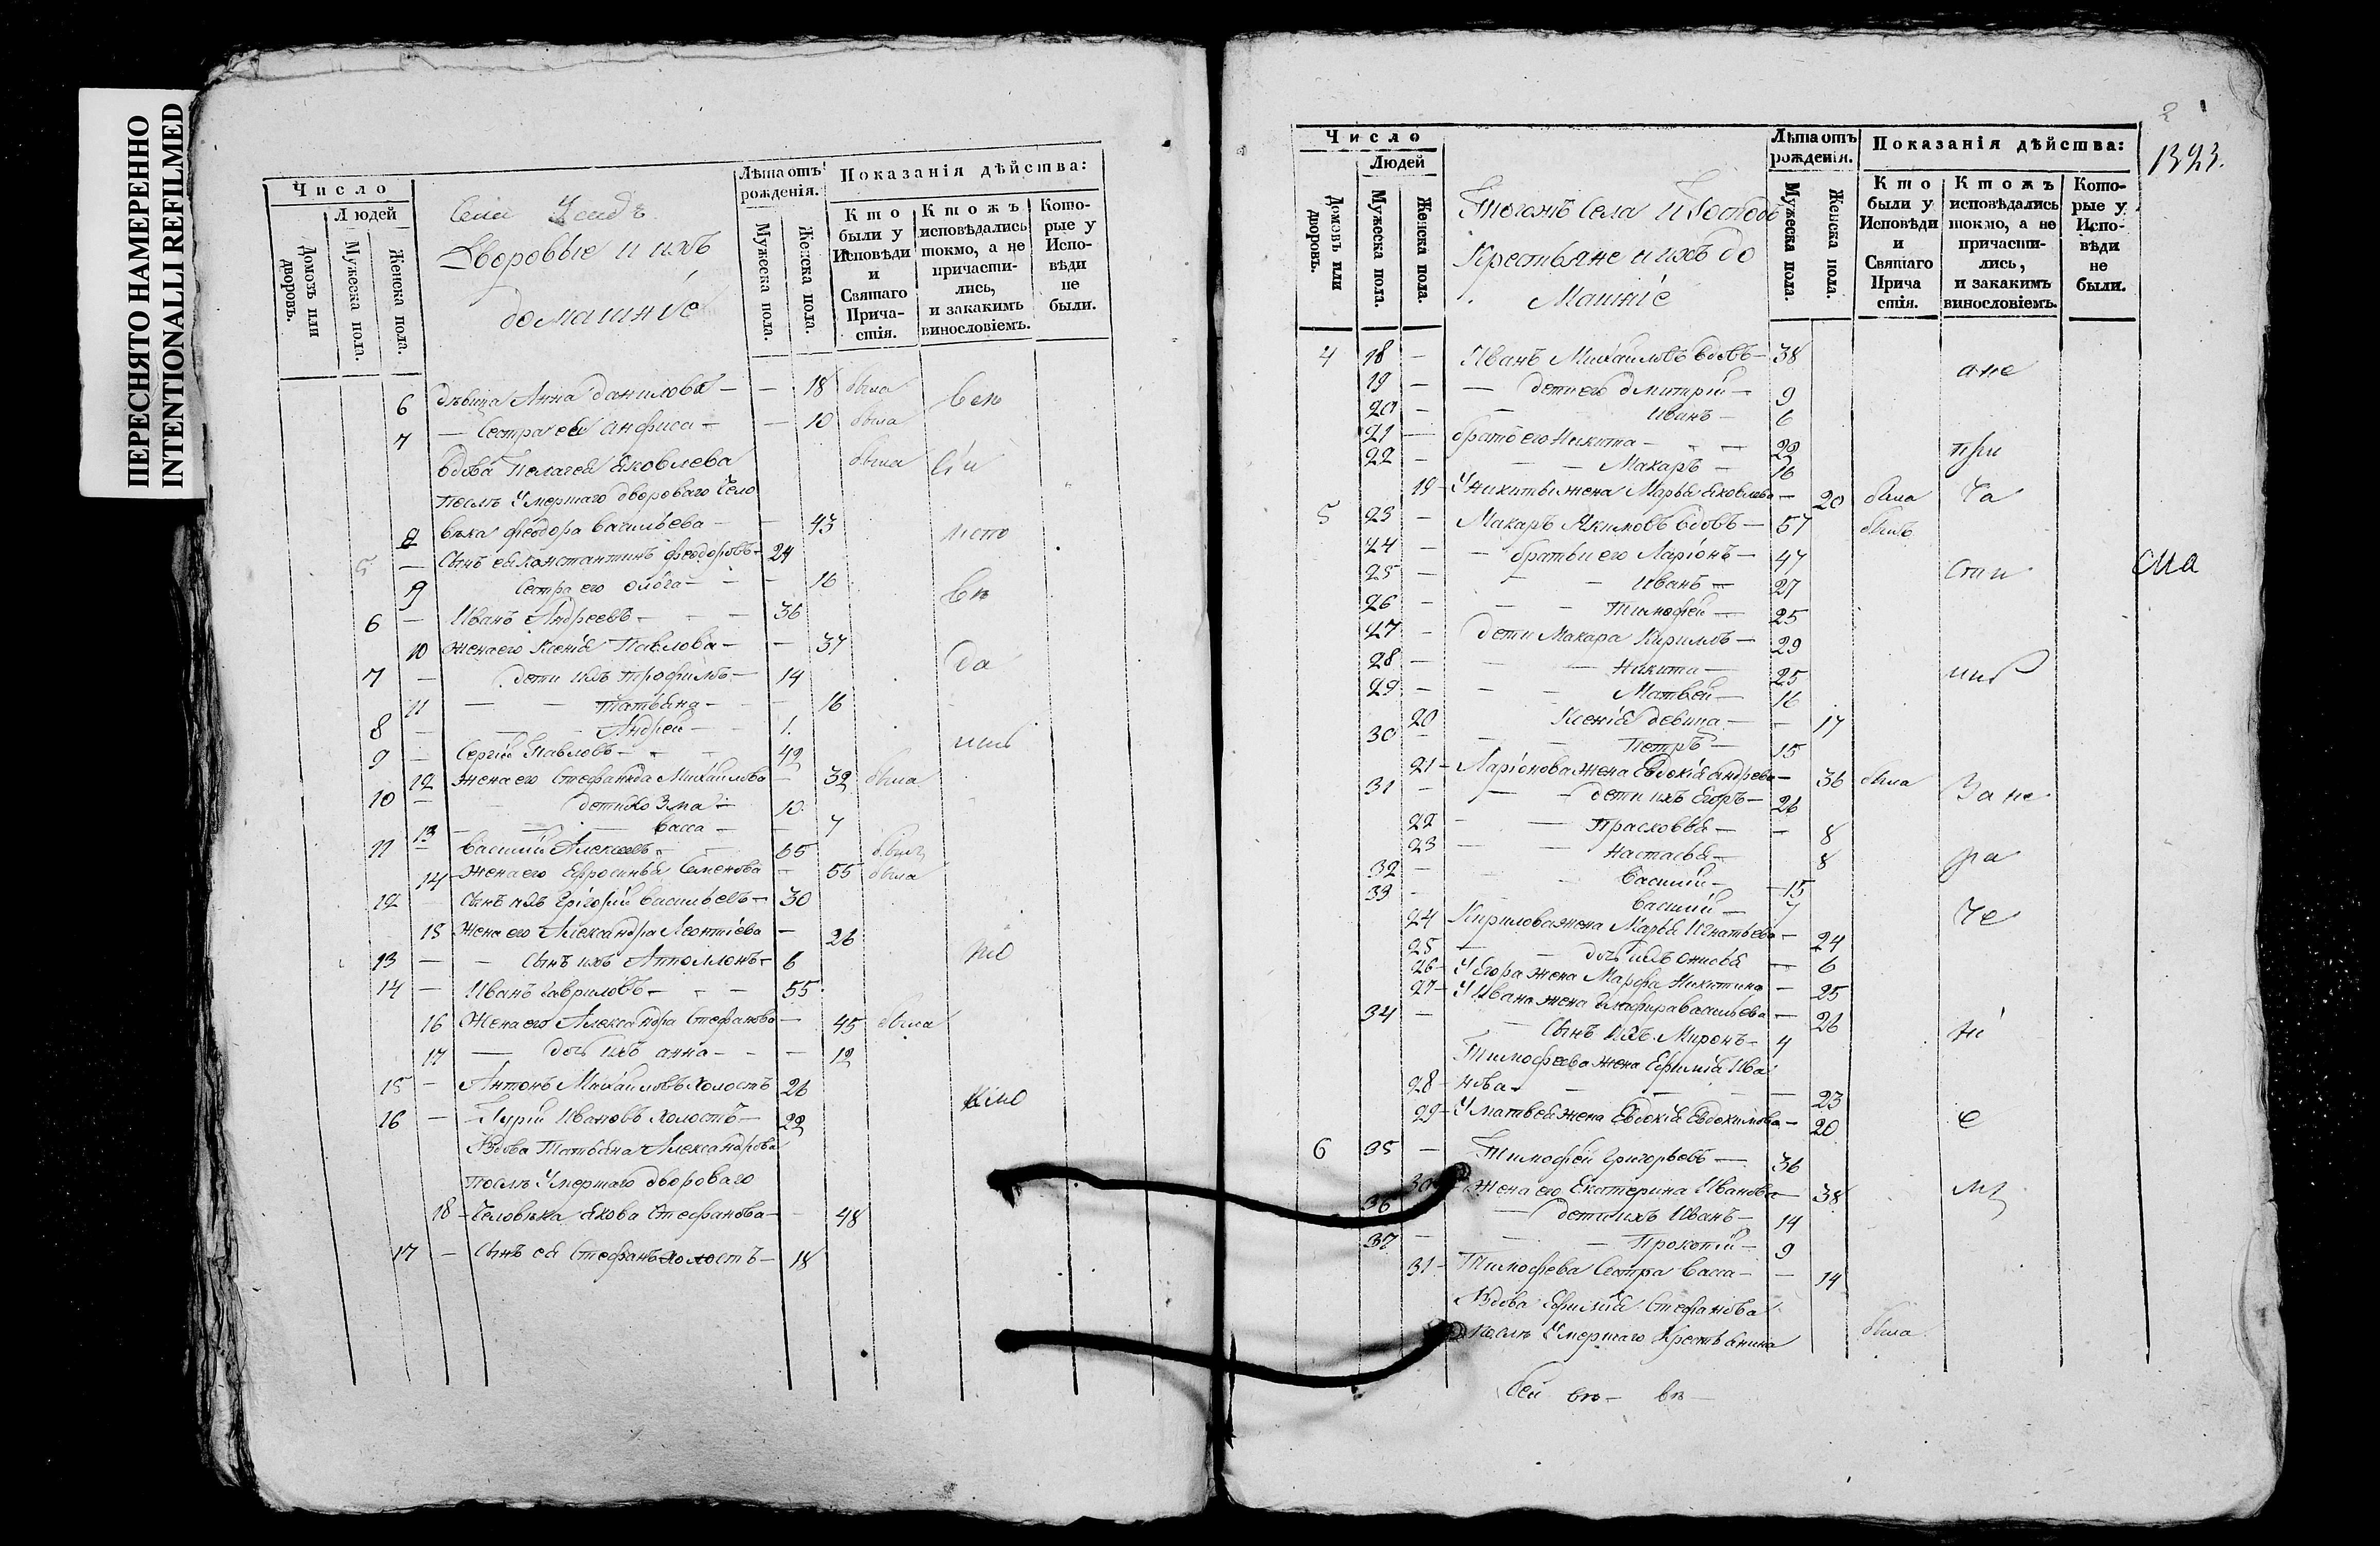 ПЕРЕСНЯТО НАМЕРЕННО
INTENTIONALLI REFILMED
Число
Людей
Домовъ или дворовъ.
Мужеска пола.
Женска пола.
Села
Дворовые и ихъ
домашніе
Лѣта отъ рожденія.
Мужеска пола.
Женска пола.
Показанія дѣйства:
Кто были у Исповѣди и Святаго Прича-стія.
Ктожъ исповѣдались токмо, а не причасти-лись, и закакимъ винословіемъ.
Кото-рые у Испо-вѣди не были.
6 дѣвица Анна Данилова — — 18 была
7 — Сестра ея Анфиса — — 10 была
вдова Пелагея Яковлева была
послѣ Умершаго двороваго Чело
8 вѣка Феодора Васильева — — 43
5 — Сынъ ея Константинъ Феодоровъ — 24
9 Сестра его Ольга — — 16
6 — Иванъ Андреевъ — — 36
10 Жена его Ксенія Павлова — — 37
7 — дети ихъ Трофимъ — 14
11 — — Татьяна — — 16
8 — — Андрей — 1.
9 — Сергій Павловъ — — 42
12 Жена его Стефанида Михайлова — 32 была
10 — дети Козма — 10
13 — — Васса — — 7
11 — Василій Алексѣевъ — 65 былъ
14 — Жена его Ефросинья Семенова — 55 была
12 Сынъ ихъ Григорій Васильевъ — 30
15 Жена его Александра Леонтіева — 26
13 — — Сынъ ихъ Апполлонъ — 6
14 — Иванъ Гавриловъ — — — 55
16 Жена его Александра Стефанова — 45 была
17 — дочь ихъ анна — — — 12
15 — Антонъ Михайловъ холостъ 26
16 — Гурій Ивановъ холостъ — 22
Вдова Татьяна Александрова
послѣ Умершаго двороваго
18 — Человѣка Якова Стефанова — — 48
17 — Сынъ ея Стефанъ холостъ — 18
1323.
Число
Людей
Домовъ или дворовъ.
Мужеска пола.
Женска пола.
Тогожъ Села
Крестьяне и ихъ до
машніе
Лѣта отъ рожденія.
Мужеска пола.
Женска пола.
Показанія дѣйства:
Кто были у Исповѣди и Святаго Прича стія.
Ктожъ исповѣдались токмо, а не причасти-лись, и закакимъ винословіемъ.
Кото-рые у Испо-вѣди не были.
4 18 — Иванъ Михайловъ вдовъ — 38 а не
19 — — дети его Дмитрій — 9
20 — — Иванъ — 6
21 — братъ его Никита — — — 22 при
22 — — — Макаръ — 16
19 — У Никиты жена Марья Яковлева — 20 была ча
5 23 — Макаръ Акимовъ вдовъ — 57 былъ
24 — — братьи его Ларіонъ — 47
25 — — — Иванъ — 27 сти
26 — — — Тимофей — 25
27 — дети Макара Кирилъ — 29
28 — — — Никита — 25
29 — — — Матвей — 16
20 Ксенія девица — — 17
30 — — — Петръ — 15
21 — Ларіонова жена Евдокія Андрева — 36 была За не
31 — — — дети ихъ Егоръ — 26
22 — — Прасковья — — 8
23 — — Настасья — 8 ра
32 — — Василій — — 15
33 — Василій — 7 че
24 Кирилова жена Марья Игнатьева — 24
25 — — дочь ихъ — 6
26 — У Егора жена Марфа Никитина — 25
27 — У Ивана жена Глафира Васильева — 26
34 — — Сынъ ихъ Миронъ — 4
Тимофеева жена Ефимія Ива
28 — нова — — — 23
29 — У Матвея жена Евдокія Евдокимова — 20
6 35 — Тимофей Григорьевъ — 36
30 — Жена его Екатерина Иванова — 38
36 — дети ихъ Иванъ — 14
37 — — — Прокопій — 9
31 — Тимофева Сестра Васса — — 14
Вдова Ефимія Стефанова
послѣ Умершаго Крестьянина была